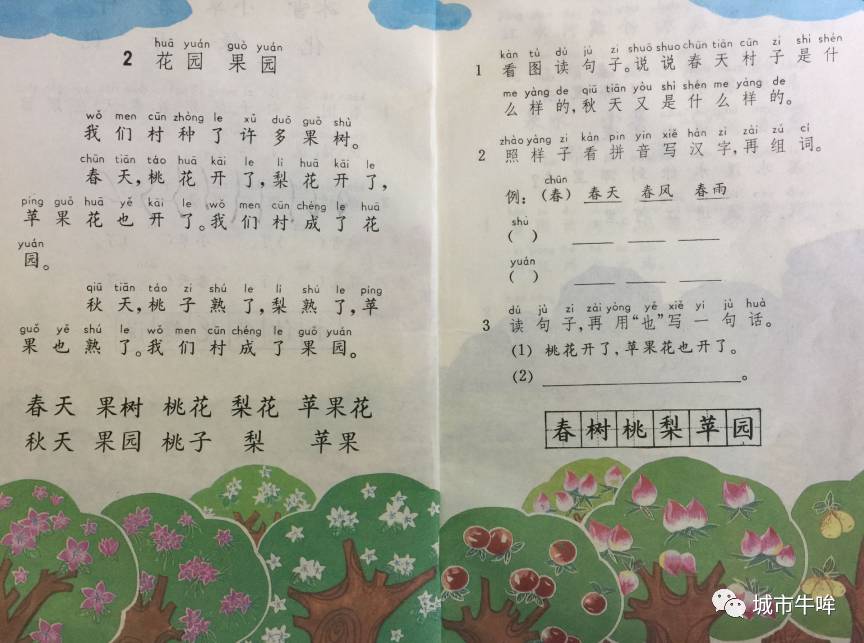 huā yuán guǒ yuán
2 花园 果园
wǒ men cūn zhòng le xǔ duō guǒ shù
我们村种了许多果树。
chūn tiān táo huā kāi le lí huā kāi le
春天,桃花开了,梨花开了,
píng guǒ huā yě kāi le wǒ men cūn chéng le huā
苹果花也开了。我们村成了花
yuán
园。
qiū tiān táo zi shú le lí shú le píng
秋天,桃子熟了,梨熟了,苹
guǒ yě shú le wǒ men cūn chéng le guǒ yuán
果也熟了。我们村成了果园。
春天 果树 桃花 梨花 苹果花
秋天 果园 桃子 梨 苹果
kàn tú dú jù zi shuō shuo chūn tiān cūn zi shì shén
1 看图读句子。说说春天村子是什
me yàng de qiū tiān yòu shì shén me yàng de
么样的,秋天又是什么样的。
zhào yàng zi kàn pīn yīn xiě hàn zì zài zǔ cí
2 照样子看拼音写汉字,再组词。
chūn
例:(春) 春天 春风 春雨
shù
( ) ____ ____ ____
yuán
( ) ____ ____ ____
dú jù zi zài yòng yě xiě yí jù huà
3 读句子,再用“也”写一句话。
(1) 桃花开了,苹果花也开了。
(2) ____________________。
春树桃梨苹园
城市牛哞